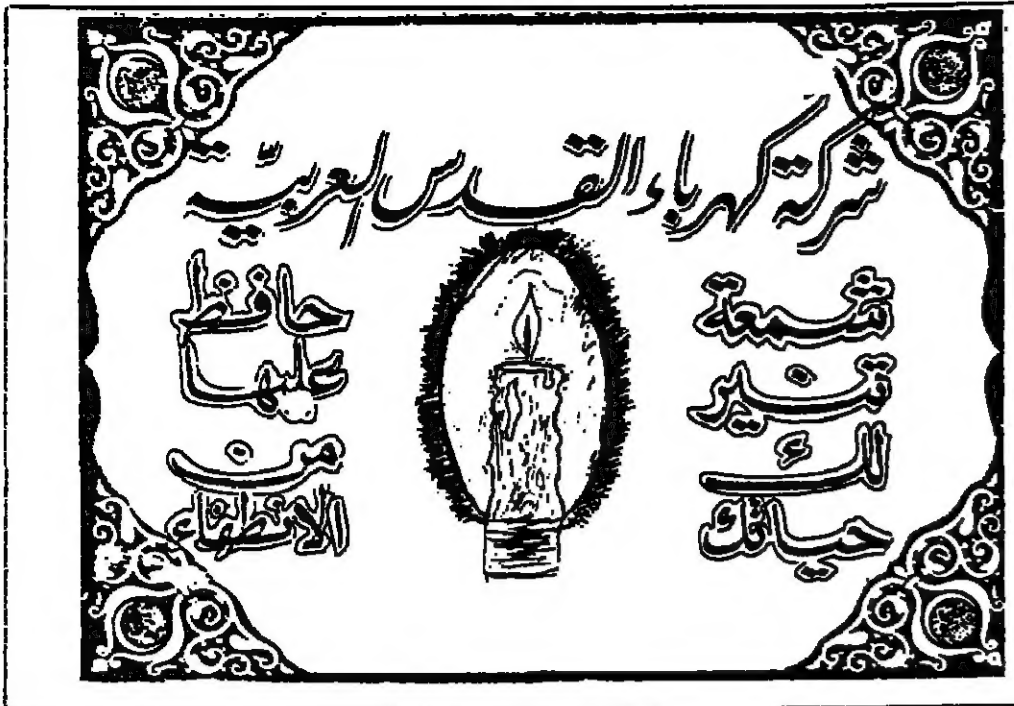 شركة كهرباء القدس العربية
شمعة
تنير
لك
حياتك
حافظ
عليها
من
الانطفاء